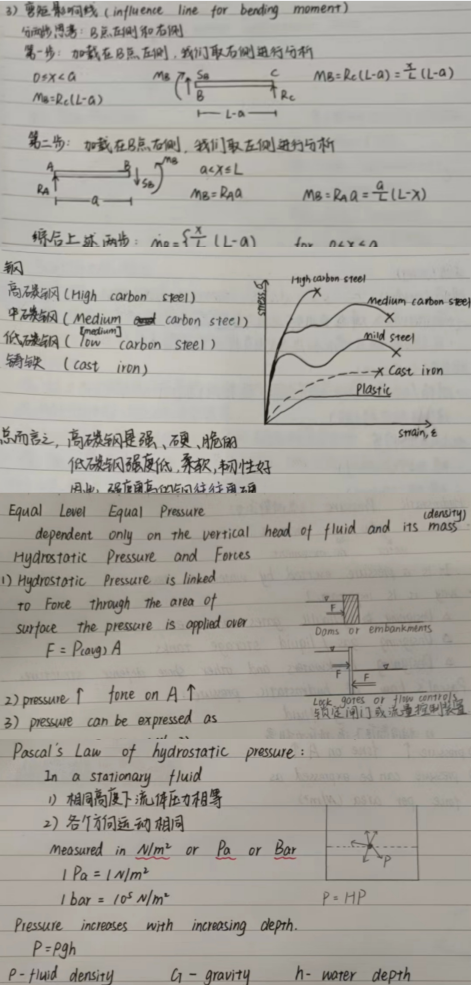 3) 弯矩影响线 (influence line for bending moment)
分两步思考: B点左侧和右侧
第一步: 加载在B点左侧, 我们取右侧进行分析
0≤x<a
M_B=R_C(L-a)
M_B S_B C
B R_C
L-a
M_B=R_C(L-a)=x/L(L-a)
第二步: 加载在B点右侧, 我们取左侧进行分析
A B M_B
R_A S_B
a
a<x≤L
M_B=R_A a
M_B=R_A a=a/L(L-x)
综合上述两步: {x/L (L-a) for 0<x≤a
钢
高碳钢 (High carbon steel)
中碳钢 (Medium carbon steel)
[medium]
低碳钢 (low carbon steel)
铸铁 (cast iron)
stress, σ
High carbon steel
Medium carbon steel
mild steel
Cast iron
Plastic
strain, ε
总而言之, 高碳钢是强、硬、脆的
低碳钢强度低, 柔软, 韧性好
因此, 强度更高的钢往往更硬
Equal Level Equal Pressure
(density)
dependent only on the vertical head of fluid and its mass
Hydrostatic Pressure and Forces
1) Hydrostatic Pressure is linked
to Force through the area of
surface the pressure is applied over
F = P(avg) A
F
Dams or embankments
F
F
Lock gates or flow controls
2) pressure ↑ force on A ↑
3) pressure can be expressed as
Pascal's Law of hydrostatic pressure:
In a stationary fluid
1) 相同高度下流体压力相等
2) 各个方向运动相同
Measured in N/m² or Pa or Bar
1 Pa = 1 N/m²
1 bar = 10⁵ N/m²
P
P = HP
Pressure increases with increasing depth.
P=ρgh
ρ-fluid density G - gravity h- water depth